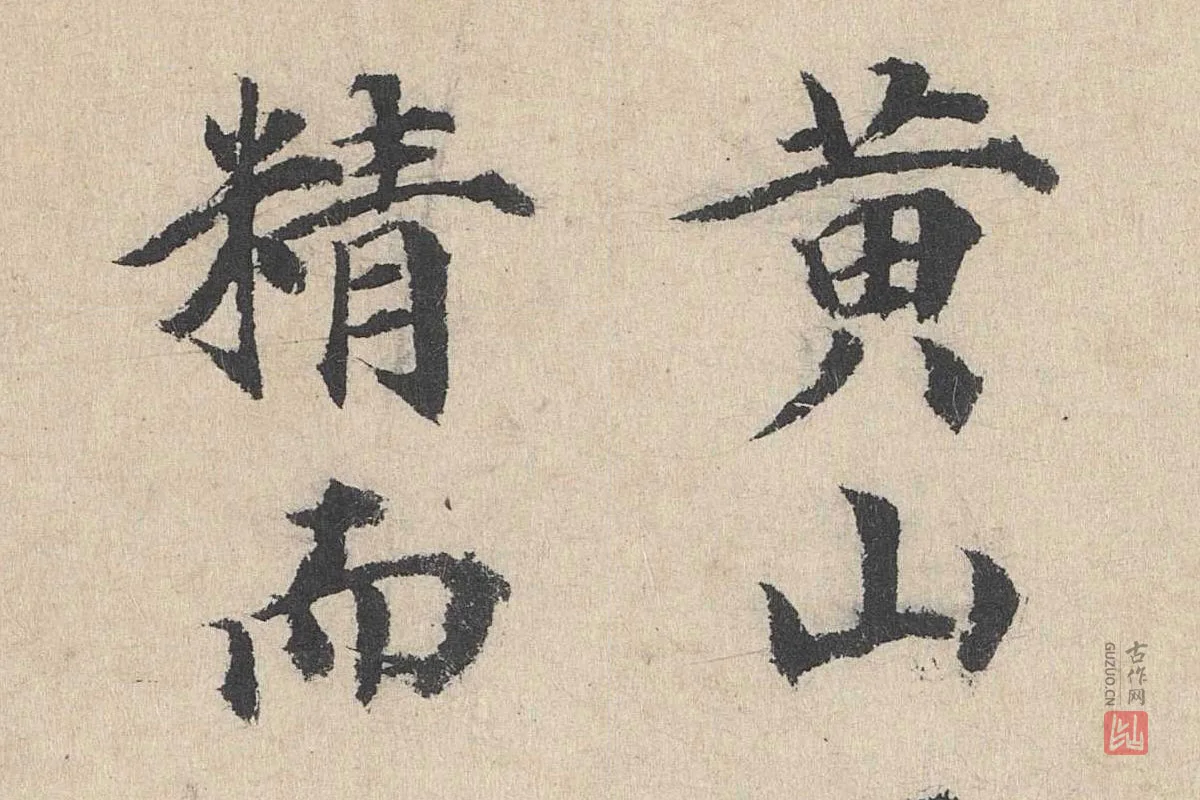 黄山
精而
古作网
GUZUO.CN